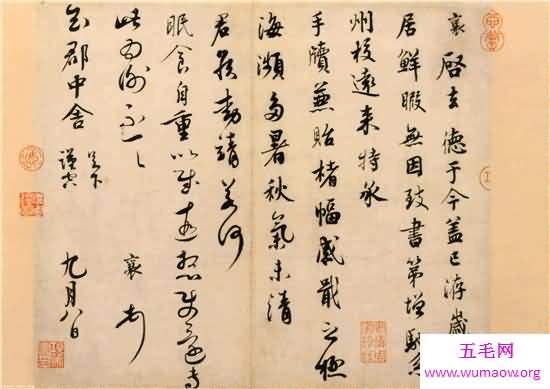 襄啓去德于今蓋已洊歲
居鮮暇無因致書第增馳
州校遠來特承
手牘兼貽楮幅感戢之極
海瀕多暑秋氣未清
君侯動靜若何
眠食自重以
此為謝不一一 襄頓首
知郡中舍足下 謹空 九月八日
五毛网
www.wumaow.org